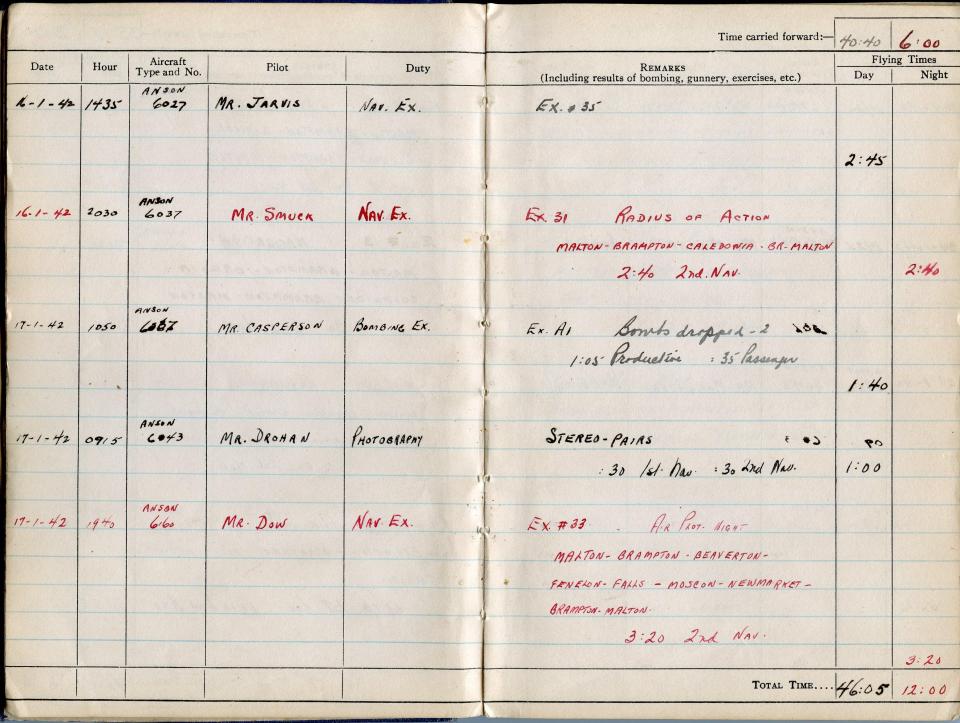 Time carried forward:— 40:40 6:00
Date Hour Aircraft Type and No. Pilot Duty Remarks (Including results of bombing, gunnery, exercises, etc.) Flying Times Day Night
16-1-42 1435 ANSON 6027 MR. JARVIS NAV. EX. EX. #35
2:45
16-1-42 2030 ANSON 6037 MR. SMUCK NAV. EX. EX. 31 RADIUS OF ACTION
MALTON-BRAMPTON-CALEDONIA-BR-MALTON
2:40 2nd. NAV. 2:40
17-1-42 1050 ANSON MR. CASPERSON BOMBING EX. EX. A1 Bombs dropped - 2
1:05 Productive :35 Passenger
1:40
17-1-42 0915 ANSON 6043 MR. DROHAN PHOTOGRAPHY STEREO-PAIRS
:30 1st. Nav. :30 2nd Nav. 1:00
17-1-42 1940 ANSON 660 MR. DOW NAV. EX. EX. #33 AIR PLOT. NIGHT
MALTON-BRAMPTON-BEAVERTON-
FENELON-FALLS - MOSCOW-NEWMARKET-
BRAMPTON-MALTON.
3:20 2nd NAV.
3:20
TOTAL TIME.... 46:05 12:00